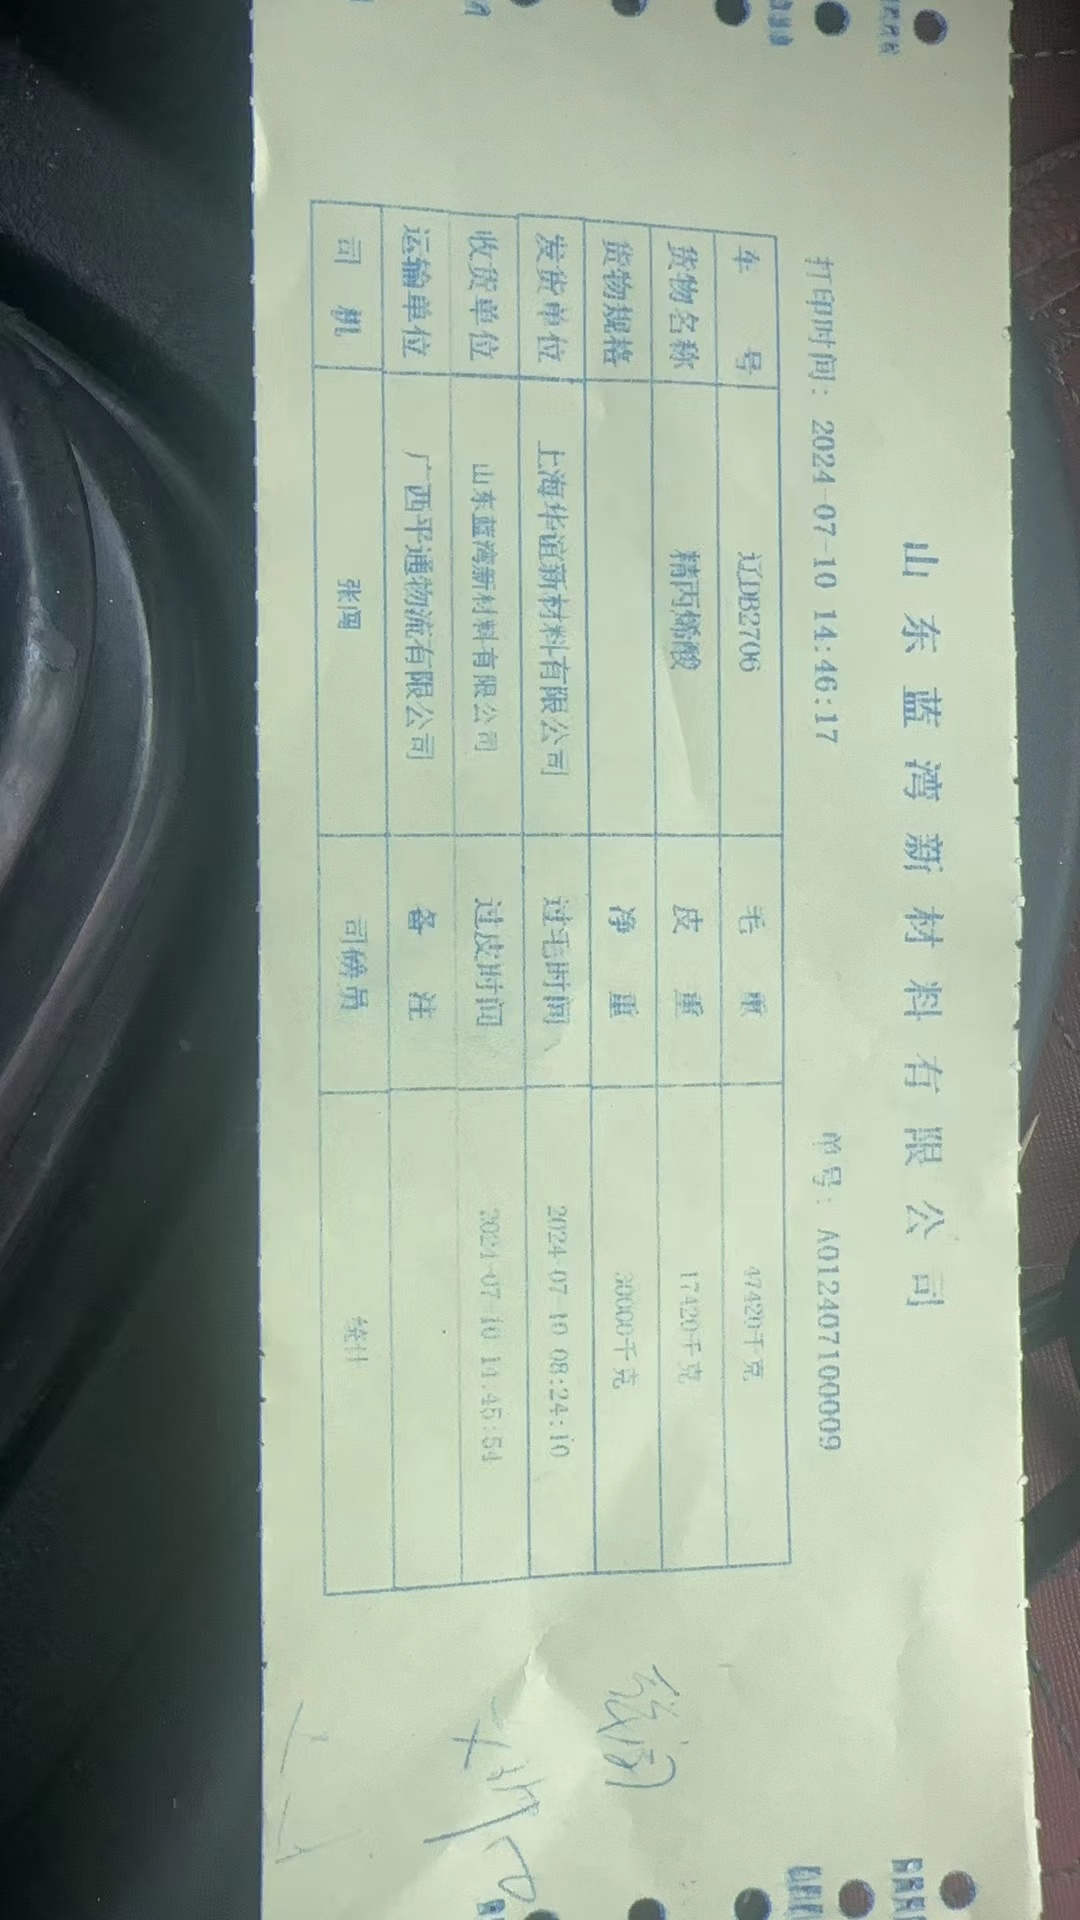 山东蓝湾新材料有限公司
打印时间: 2024-07-10 14:46:17 单号: A012407100009
车号 辽DB2706 毛重 47420千克
货物名称 精丙烯酸 皮重 17420千克
货物规格 净重 30000千克
发货单位 上海华谊新材料有限公司 过毛时间 2024-07-10 08:24:10
收货单位 山东蓝湾新材料有限公司 过皮时间 2024-07-10 14:45:54
运输单位 广西平通物流有限公司 备注
司机 张闯 司磅员 统计